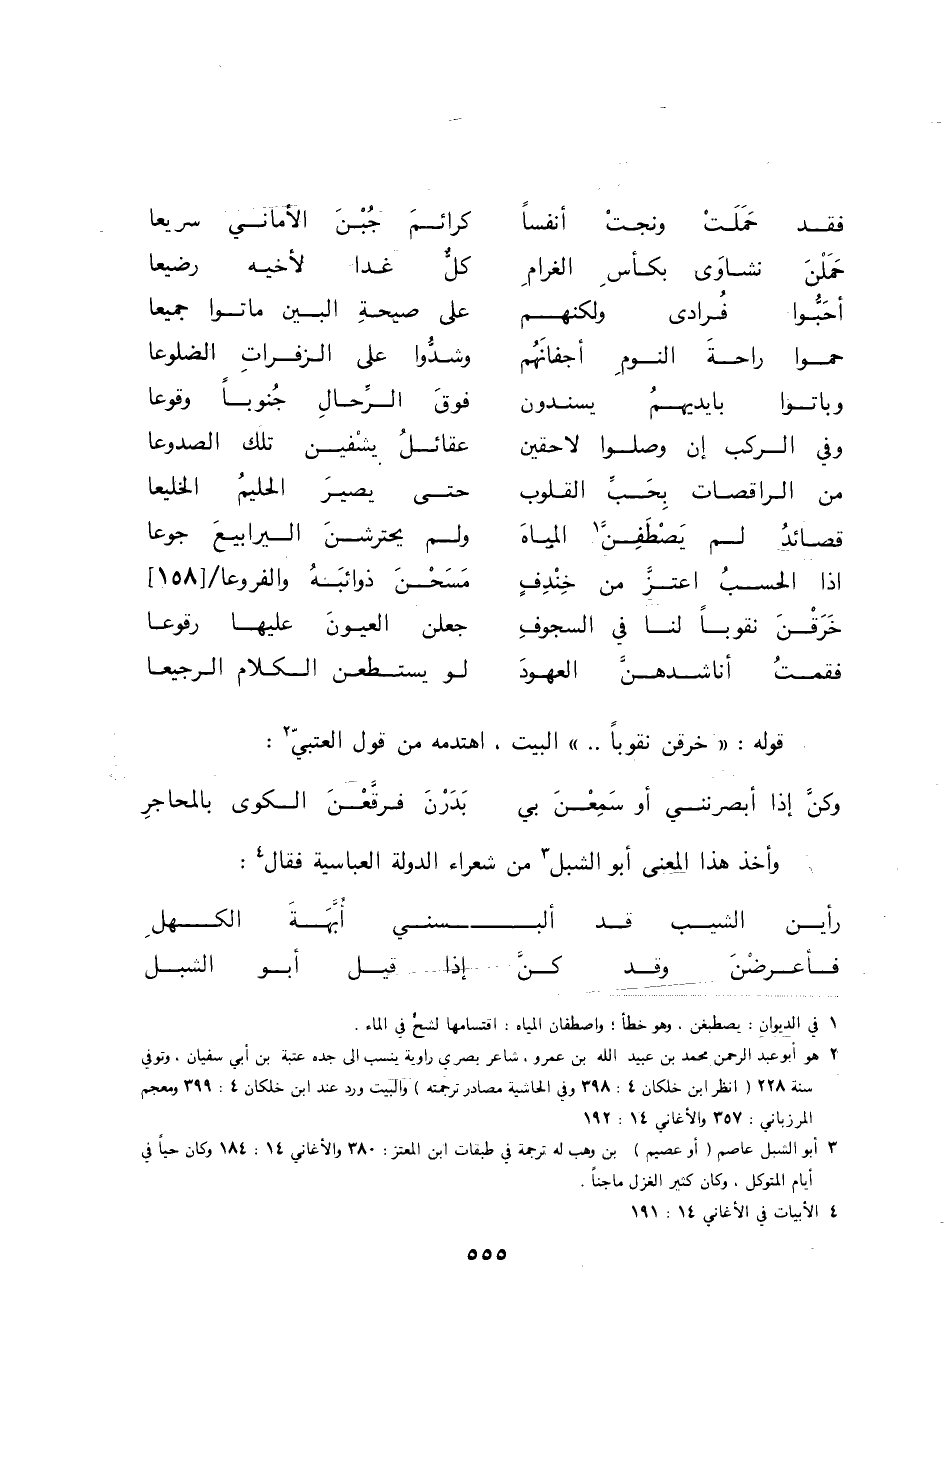 فقد حَمَلَتْ ونجتْ أنفساً كرائمَ جُبْنَ الأماني سريعا
حَمَلْنَ نشاوَى بكأسِ الغرامِ كلٌّ غدا لأخيه رضيعا
أحَبُّوا فُرادى ولكنهم على صيحةِ البين ماتوا جميعا
حموا راحةَ النومِ أجفانَهُم وشدُّوا على الزفراتِ الضلوعا
وباتوا بايديهمُ يسندون فوقَ الرِّحالِ جُنوباً وقوعا
وفي الركب إن وصلوا لاحقين عقائلُ يشْفين تلك الصدوعا
من الراقصات بِحَبِّ القلوب حتى يصيرَ الحليمُ الخليعا
قصائدُ لم يَصْطَفِنَّ١ المياهَ ولم يحترشنَ اليرابيعَ جوعا
اذا الحسبُ اعتزَّ من خِنْدِفٍ مَسَحْنَ ذوائبَهُ والفروعا/[١٥٨]
خَرَقْنَ نقوباً لنا في السجوفِ جعلن العيونَ عليها رقوعا
فقمتُ أناشدهنَّ العهودَ لو يستطعن الكلام الرجيعا
قوله : « خرقن نقوباً .. » البيت ، اهتدمه من قول العتبيّ٢ :
وكنَّ إذا أبصرنني أو سَمِعْنَ بي بَدَرْنَ فرقَّعْنَ الكوى بالمحاجرِ
وأخذ هذا المعنى أبو الشبل٣ من شعراء الدولة العباسية فقال٤ :
رأين الشيب قد ألبسني أُبَّهَةَ الكهلِ
فأعرضْنَ وقد كنَّ إذا قيل أبو الشبل
١ في الديوان : يصطبغن ، وهو خطأ ؛ واصطفان المياه : اقتسامها لشحٍّ في الماء .
٢ هو أبو عبد الرحمن محمد بن عبيد الله بن عمرو ، شاعر بصري راوية ينسب الى جده عتبة بن أبي سفيان ، وتوفي
سنة ٢٢٨ ( انظر ابن خلكان ٤ : ٣٩٨ وفي الحاشية مصادر ترجمته ) والبيت ورد عند ابن خلكان ٤ : ٣٩٩ ومعجم
المرزباني : ٣٥٧ والأغاني ١٤ : ١٩٢
٣ أبو الشبل عاصم ( أو عصيم ) بن وهب له ترجمة في طبقات ابن المعتز : ٣٨٠ والأغاني ١٤ : ١٨٤ وكان حياً في
أيام المتوكل ، وكان كثير الغزل ماجناً .
٤ الأبيات في الأغاني ١٤ : ١٩١
٥٥٥